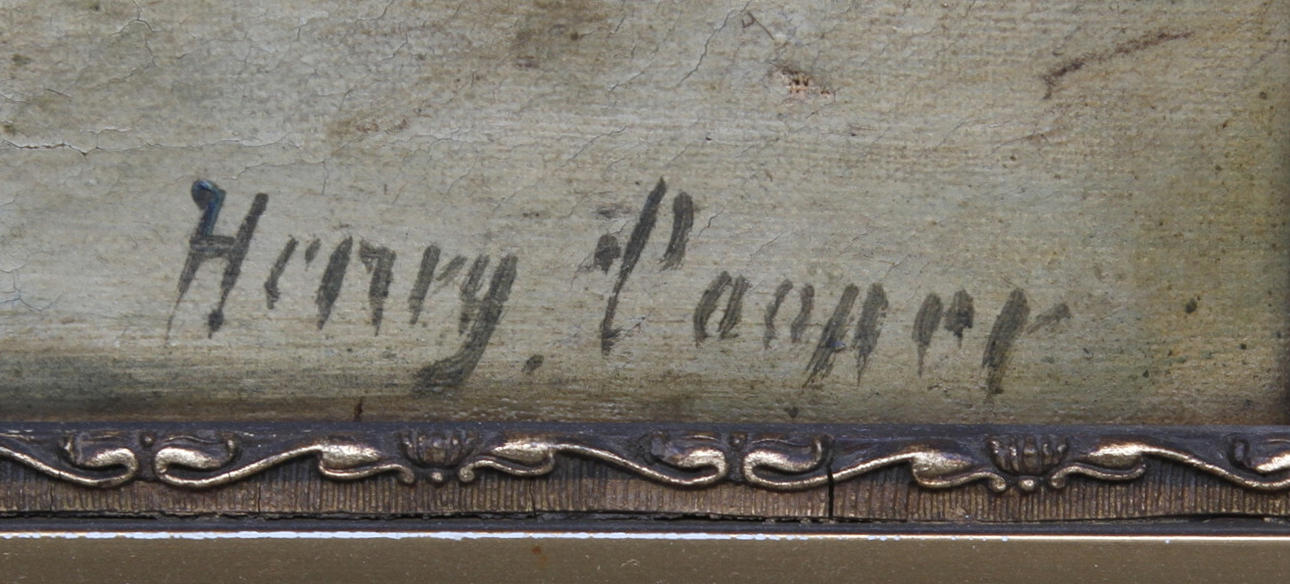 Henry. Cooper